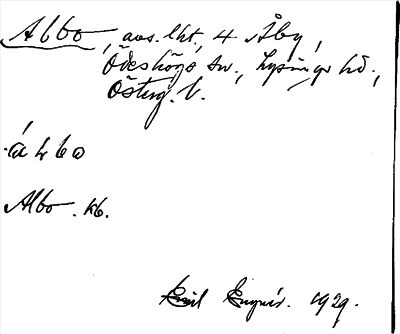 Albo, avs. lht, 4 Åby,
Ödeshögs sn., Lysings hd.,
Österg. l.
Albo. kb.
Emil Engnér. 1929.